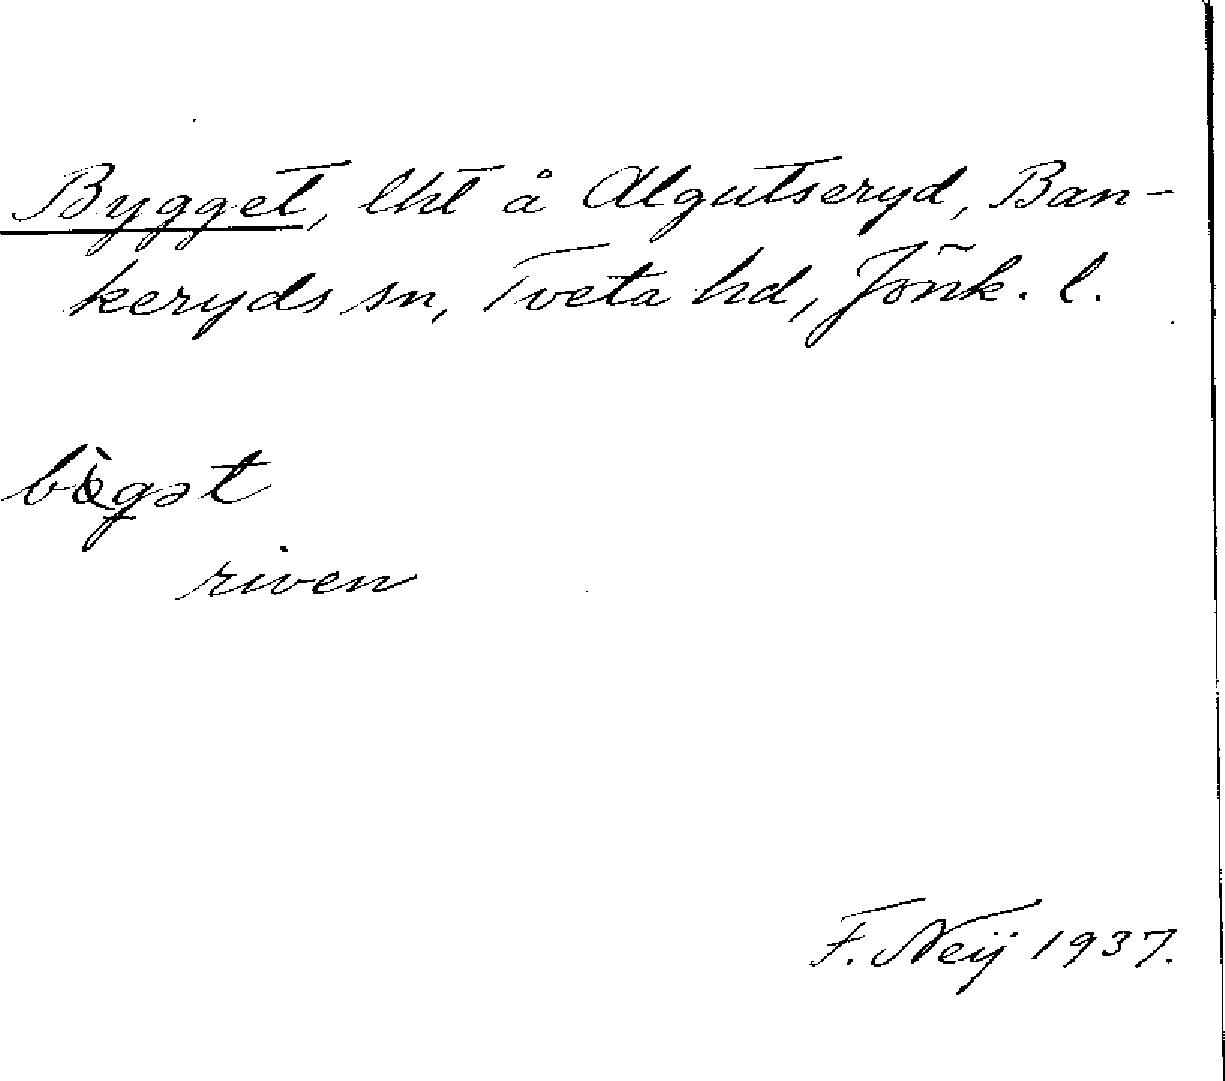 Bygget, lht å Algutseryd, Ban-
keryds sn, Tveta hd, Jönk. l.
riven
F. Neij 1937.